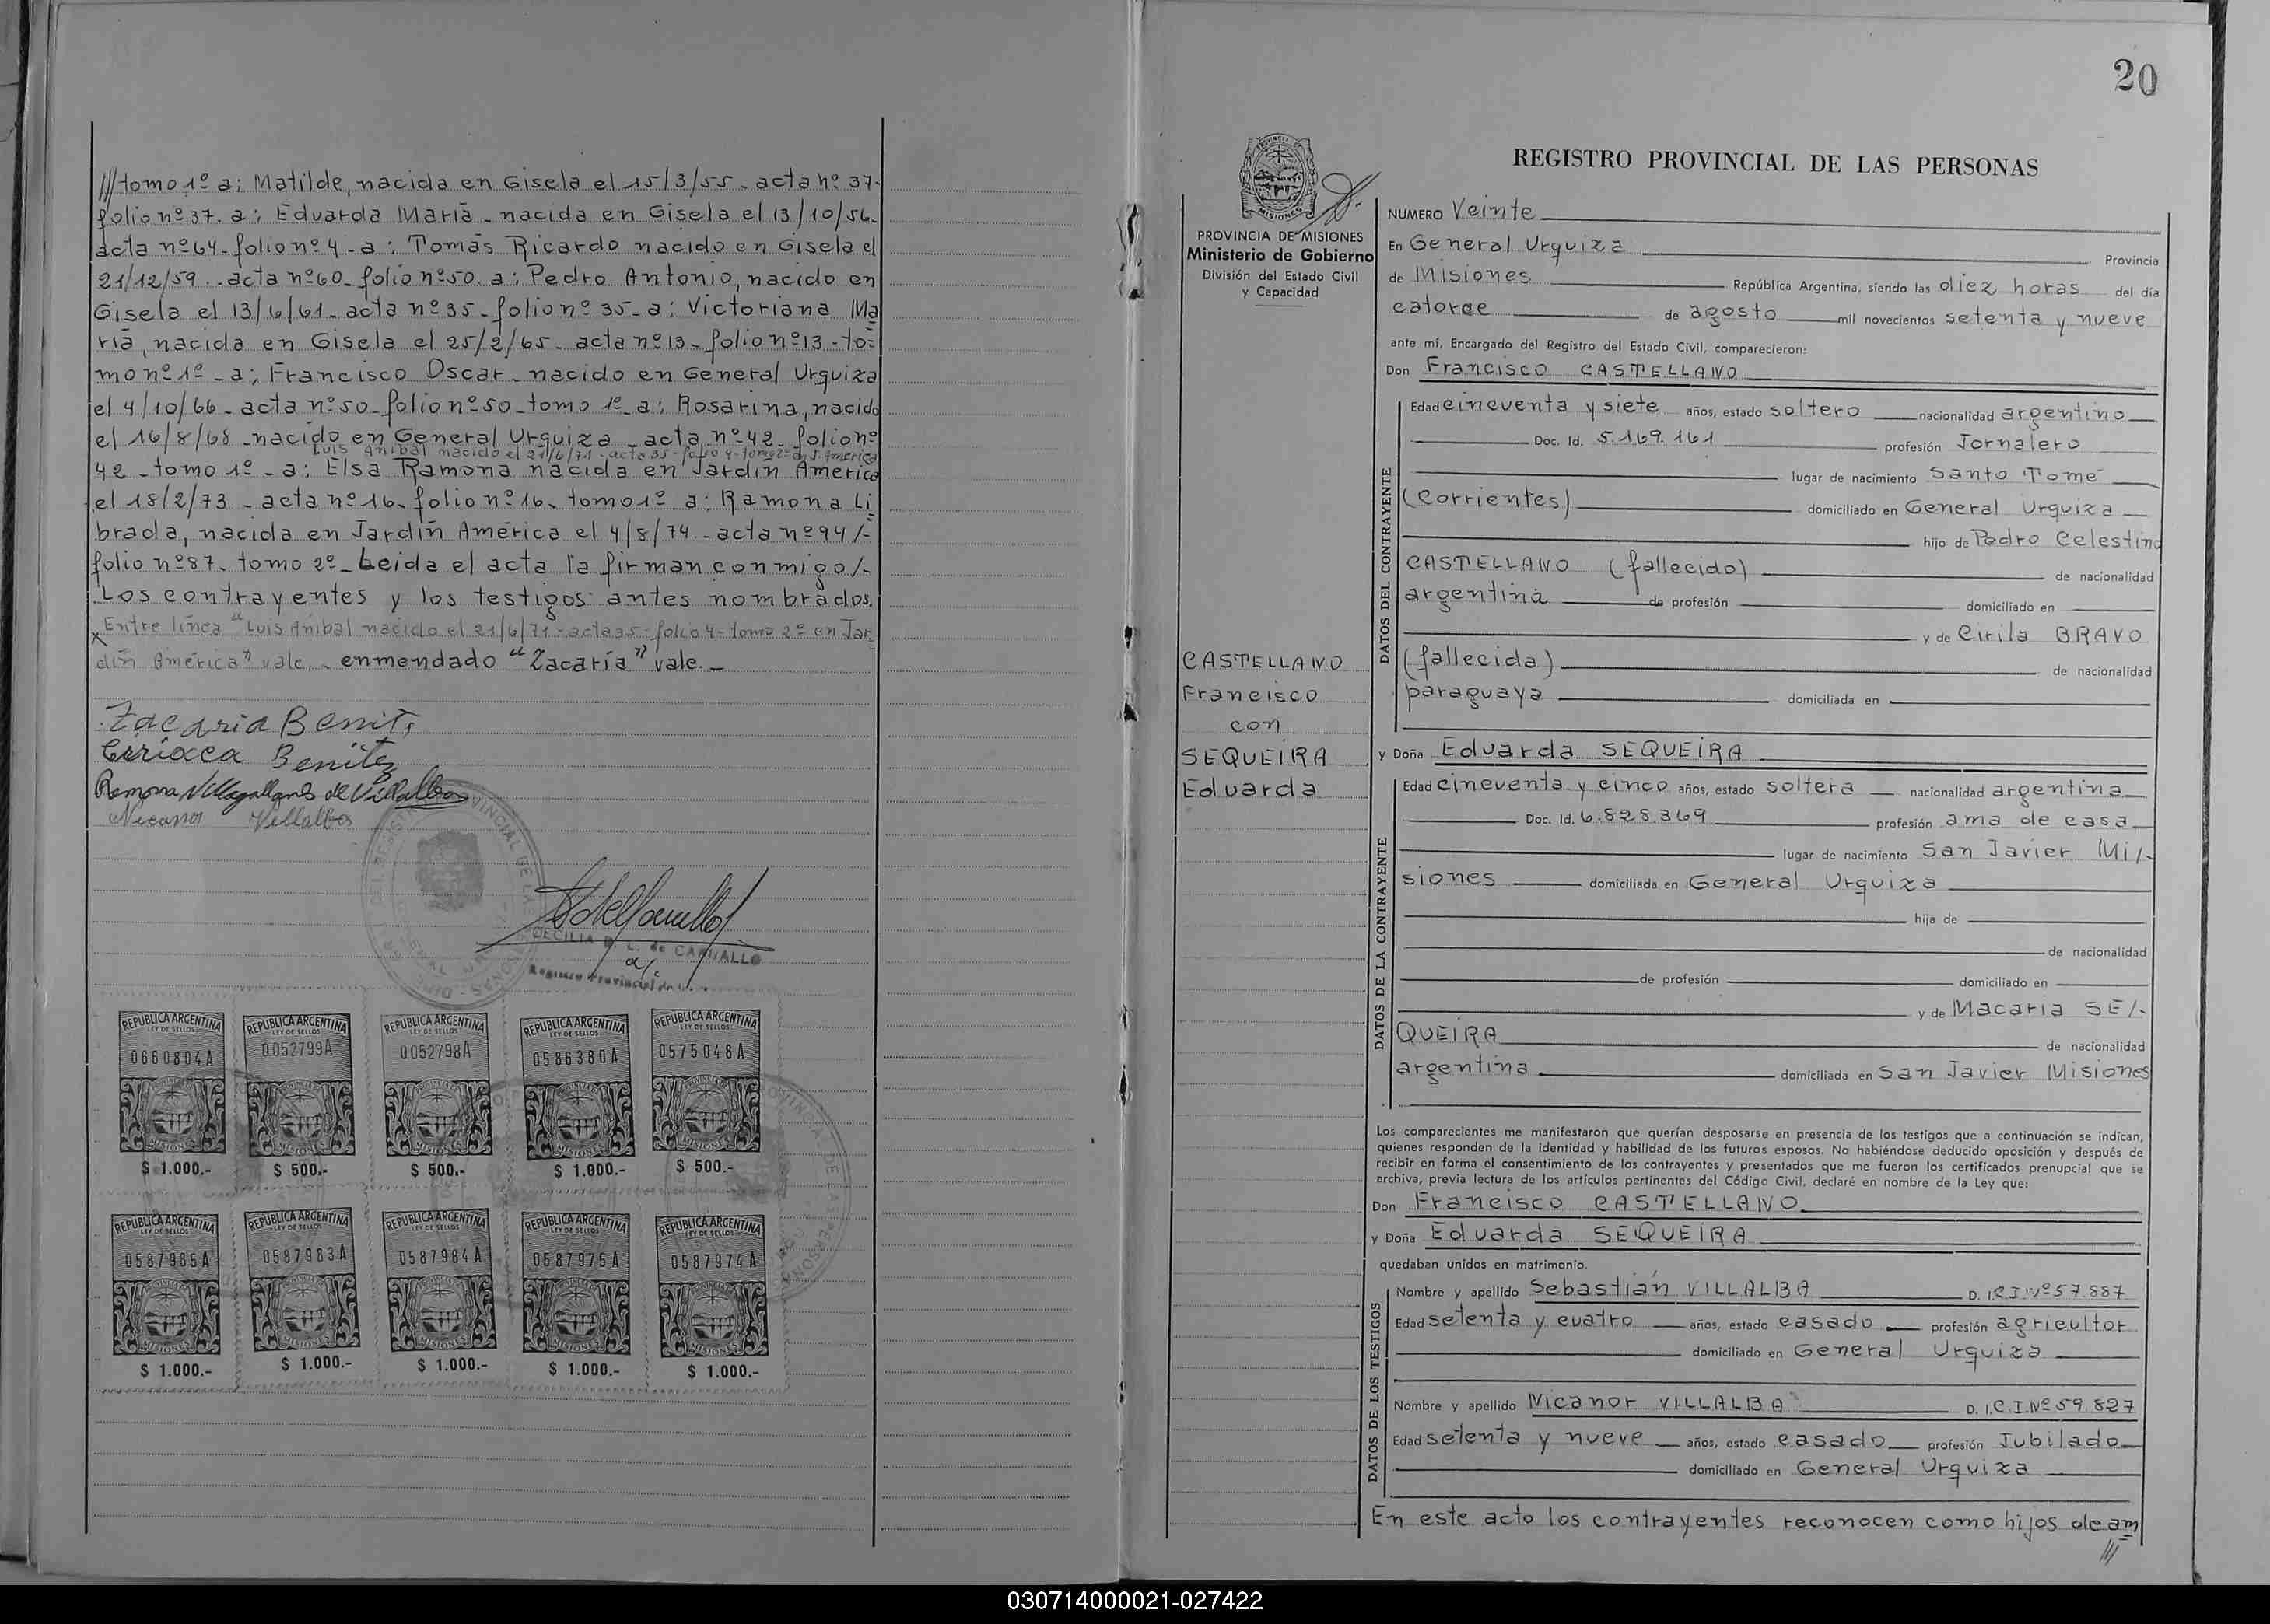 /// tomo 1º a; Matilde, nacida en Gisela el 15/3/55 - acta nº 37-
folio nº 37. a; Eduarda Maria - nacida en Gisela el 13/10/56-
acta nº 64- folio nº 4 - a: Tomás Ricardo nacido en Gisela el
21/12/59 .- acta nº 60- folio nº 50. a; Pedro Antonio, nacido en
Gisela el 13/6/61 - acta nº 35 - folio nº 35 - a; Victoriana Ma
ria, nacida en Gisela el 25/2/65 - acta nº 13 - folio nº 13 - to=
mo nº 1º - a; Francisco Oscar - nacido en General Urquiza
el 4/10/66 - acta nº 50 - folio nº 50 - tomo 1º - a: Rosarina, nacido
el 16/8/68 - nacido en General Urquiza - acta nº 42 - folio nº
Luis Anibal nacido el 21/6/71 - acta 35 - folio 4 - tomo 2º en J. America
42 - tomo 1º - a; Elsa Ramona nacida en Jardin America
el 18/2/73 - acta nº 16 - folio nº 16 - tomo 1º a: Ramona Li
brada, nacida en Jardín América el 4/8/74 - acta nº 94 /-
folio nº 87. tomo 2º - Leida el acta la firman conmigo /-
Los contrayentes y los testigos antes nombrados.
x Entre línea "Luis Anibal nacido el 21/6/71 - acta 35 - folio 4 - tomo 2º en Jar
din América" vale. - enmendado "Zacaría" vale. -
Zacaria Benit
Benitez
Ramona Villagallanes de Villalba
Nicanor Villalba
CECILIA L. de CARVALLO
Registro Provincial de
REPUBLICA ARGENTINA REPUBLICA ARGENTINA REPUBLICA ARGENTINA REPUBLICA ARGENTINA REPUBLICA ARGENTINA
LEY DE SELLOS LEY DE SELLOS LEY DE SELLOS LEY DE SELLOS LEY DE SELLOS
0660804A 0052799A 0052798A 0586380A 0575048A
MISIONES MISIONES MISIONES MISIONES MISIONES
$ 1.000.- $ 500.- $ 500.- $ 1.000.- $ 500.-
REPUBLICA ARGENTINA REPUBLICA ARGENTINA REPUBLICA ARGENTINA REPUBLICA ARGENTINA REPUBLICA ARGENTINA
LEY DE SELLOS LEY DE SELLOS LEY DE SELLOS LEY DE SELLOS LEY DE SELLOS
0587985A 0587983A 0587984A 0587975A 0587974A
MISIONES MISIONES MISIONES MISIONES MISIONES
$ 1.000.- $ 1.000.- $ 1.000.- $ 1.000.- $ 1.000.-
20
MISIONES
PROVINCIA DE MISIONES
Ministerio de Gobierno
División del Estado Civil
y Capacidad
CASTELLANO
Francisco
con
SEQUEIRA
Eduarda
REGISTRO PROVINCIAL DE LAS PERSONAS
NUMERO Veinte
En General Urquiza Provincia
de Misiones República Argentina, siendo las diez horas del día
catorce de agosto mil novecientos setenta y nueve
ante mí, Encargado del Registro del Estado Civil, comparecieron:
Don Francisco CASTELLANO
DATOS DEL CONTRAYENTE
Edad cincuenta y siete años, estado soltero nacionalidad argentino
Doc. Id. 5.169.161 profesión Jornalero
lugar de nacimiento Santo Tomé
(Corrientes) domiciliado en General Urquiza
hijo de Pedro Celestino
CASTELLANO (fallecido) de nacionalidad
argentina de profesión domiciliado en
y de Cirila BRAVO
(fallecida) de nacionalidad
paraguaya domiciliada en
y Doña Eduarda SEQUEIRA
DATOS DE LA CONTRAYENTE
Edad cincuenta y cinco años, estado soltera nacionalidad argentina
Doc. Id. 6.828.369 profesión ama de casa
lugar de nacimiento San Javier Mi/-
siones domiciliada en General Urquiza
hija de
de nacionalidad
de profesión domiciliado en
y de Macaria SE/-
QUEIRA de nacionalidad
argentina domiciliada en San Javier Misiones
Los comparecientes me manifestaron que querían desposarse en presencia de los testigos que a continuación se indican,
quienes responden de la identidad y habilidad de los futuros esposos. No habiéndose deducido oposición y después de
recibir en forma el consentimiento de los contrayentes y presentados que me fueron los certificados prenupcial que se
archiva, previa lectura de los artículos pertinentes del Código Civil, declaré en nombre de la Ley que:
Don Francisco CASTELLANO
y Doña Eduarda SEQUEIRA
quedaban unidos en matrimonio.
DATOS DE LOS TESTIGOS
Nombre y apellido Sebastián VILLALBA D. I. C.I. Nº 57.887
Edad setenta y cuatro años, estado casado profesión agricultor
domiciliado en General Urquiza
Nombre y apellido Nicanor VILLALBA D. I. C.I. Nº 59.827
Edad setenta y nueve años, estado casado profesión Jubilado
domiciliado en General Urquiza
En este acto los contrayentes reconocen como hijos de am
///
030714000021-027422